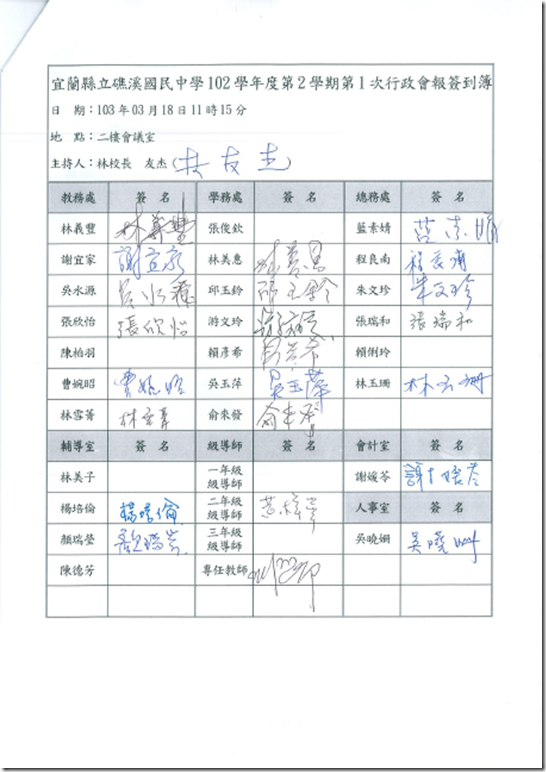 宜蘭縣立礁溪國民中學102學年度第2學期第1次行政會報簽到簿
日　期：103年03月18日11時15分
地　點：二樓會議室
主持人：林校長　友杰(林友杰)
教務處 簽名 學務處 簽名 總務處 簽名
林義豐 林義豐 張俊欽 藍素婧 藍素婧
謝宜家 謝宜家 林美惠 林美惠 程良南 程良南
吳水源 吳水源 邱玉鈴 邱玉鈴 朱文珍 朱文珍
張欣怡 張欣怡 游文玲 張瑞和 張瑞和
陳柏羽 賴彥希 賴彥希 賴俐玲
曹婉昭 曹婉昭 吳玉萍 吳玉萍 林玉珊 林玉珊
林雪菁 林雪菁 俞來發 俞來發
輔導室 簽名 級導師 簽名 會計室 簽名
林美子 一年級級導師 謝媛苓
楊培倫 楊培倫 二年級級導師 人事室 簽名
顏瑞瑩 三年級級導師 吳曉姍 吳曉姍
陳德芳 專任教師